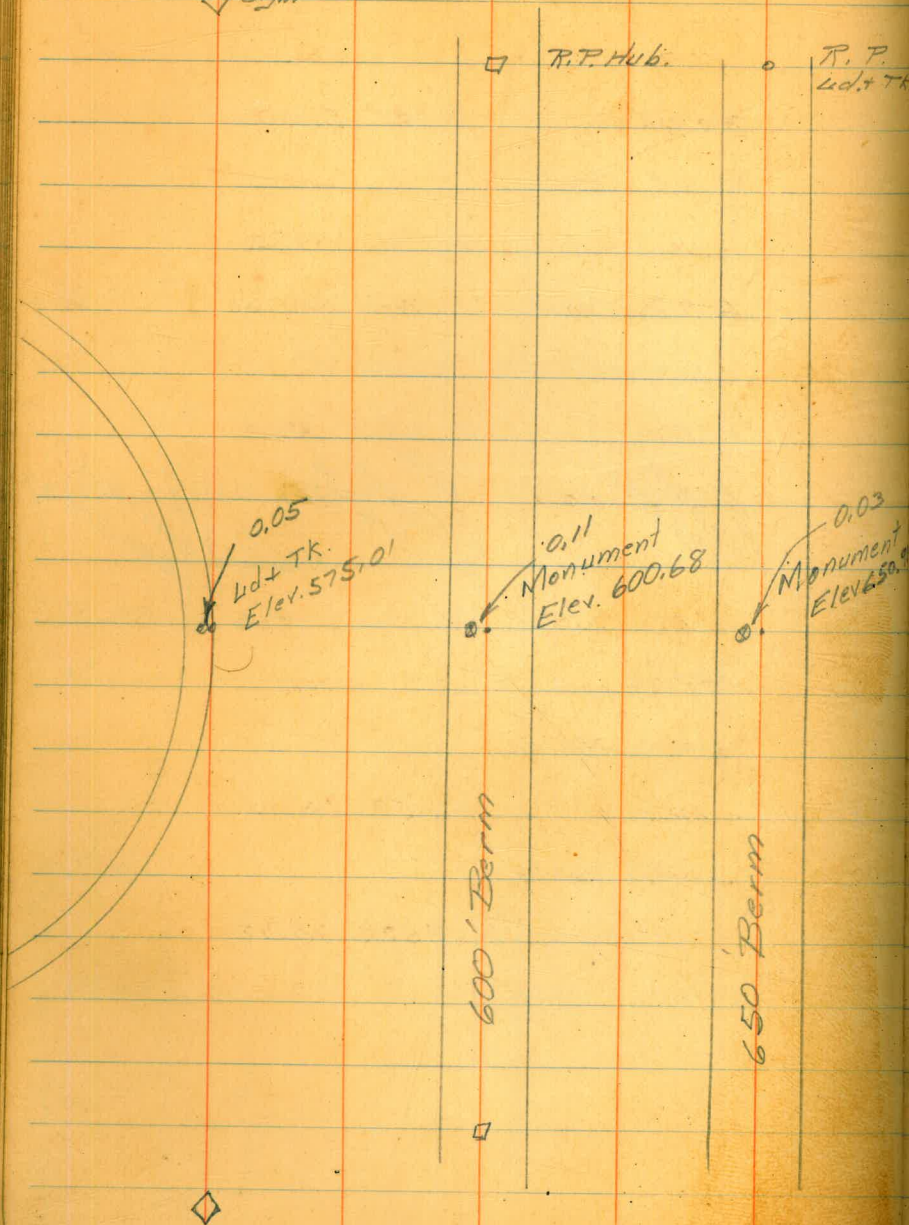 R.P. Hub.
R. P.
Ld.+ Tk
0.05
Ld+ Tk.
Elev. 575.01
0.11
Monument
Elev. 600.68
0.03
Monument
Elev 650.
600' Berm
650' Berm